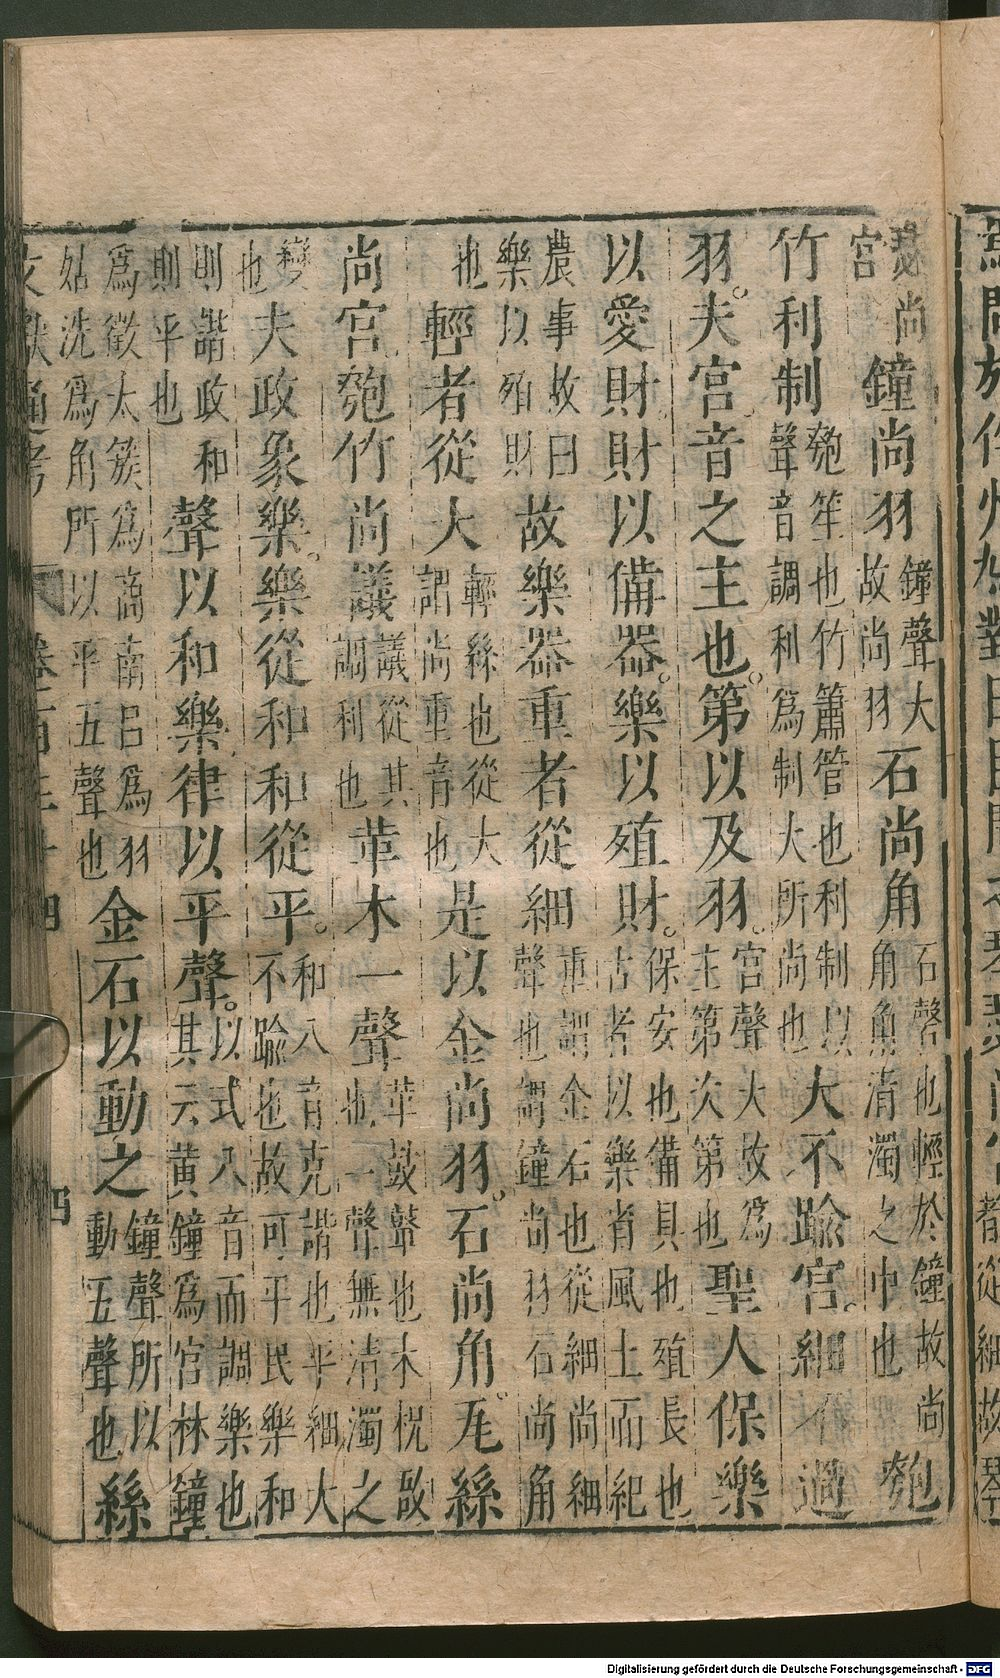 瑟尚宮鐘尚羽鐘聲大故尚羽石尚角石磬也輕於鐘故尚角角魚清濁之中也匏
竹利制匏笙也竹簫管也利制以聲音調利為制大所尚也大不踰宮。細不過
羽。夫宮音之主也。第以及羽。宮聲大故為主第次第也聖人保樂
以愛財財以備器。樂以殖財。保安也備具也殖長也古者以樂省風土而紀
農事故曰樂以殖財故樂器重者從細重謂金石也從細尚細聲也謂鐘尚羽石尚角
也輕者從大輕絲也從大謂尚重音也是以金尚羽。石尚角。瓦絲
尚宮匏竹尚議議從其調利也革木一聲革鼓鼙也木柷敔也一聲無清濁之
變也夫政象樂。樂從和和從平。和八音克諧也平細大不踰也故可平民樂和
則諧政和則平也聲以和樂律以平聲。以式八音而調樂也其云黃鐘為宮林鐘
為徵太簇為商南呂為羽姑洗為角所以平五聲也金石以動之鐘聲所以動五聲也絲
文獻通考 卷一百三十四 四
Digitalisierung gefördert durch die Deutsche Forschungsgemeinschaft - DFG